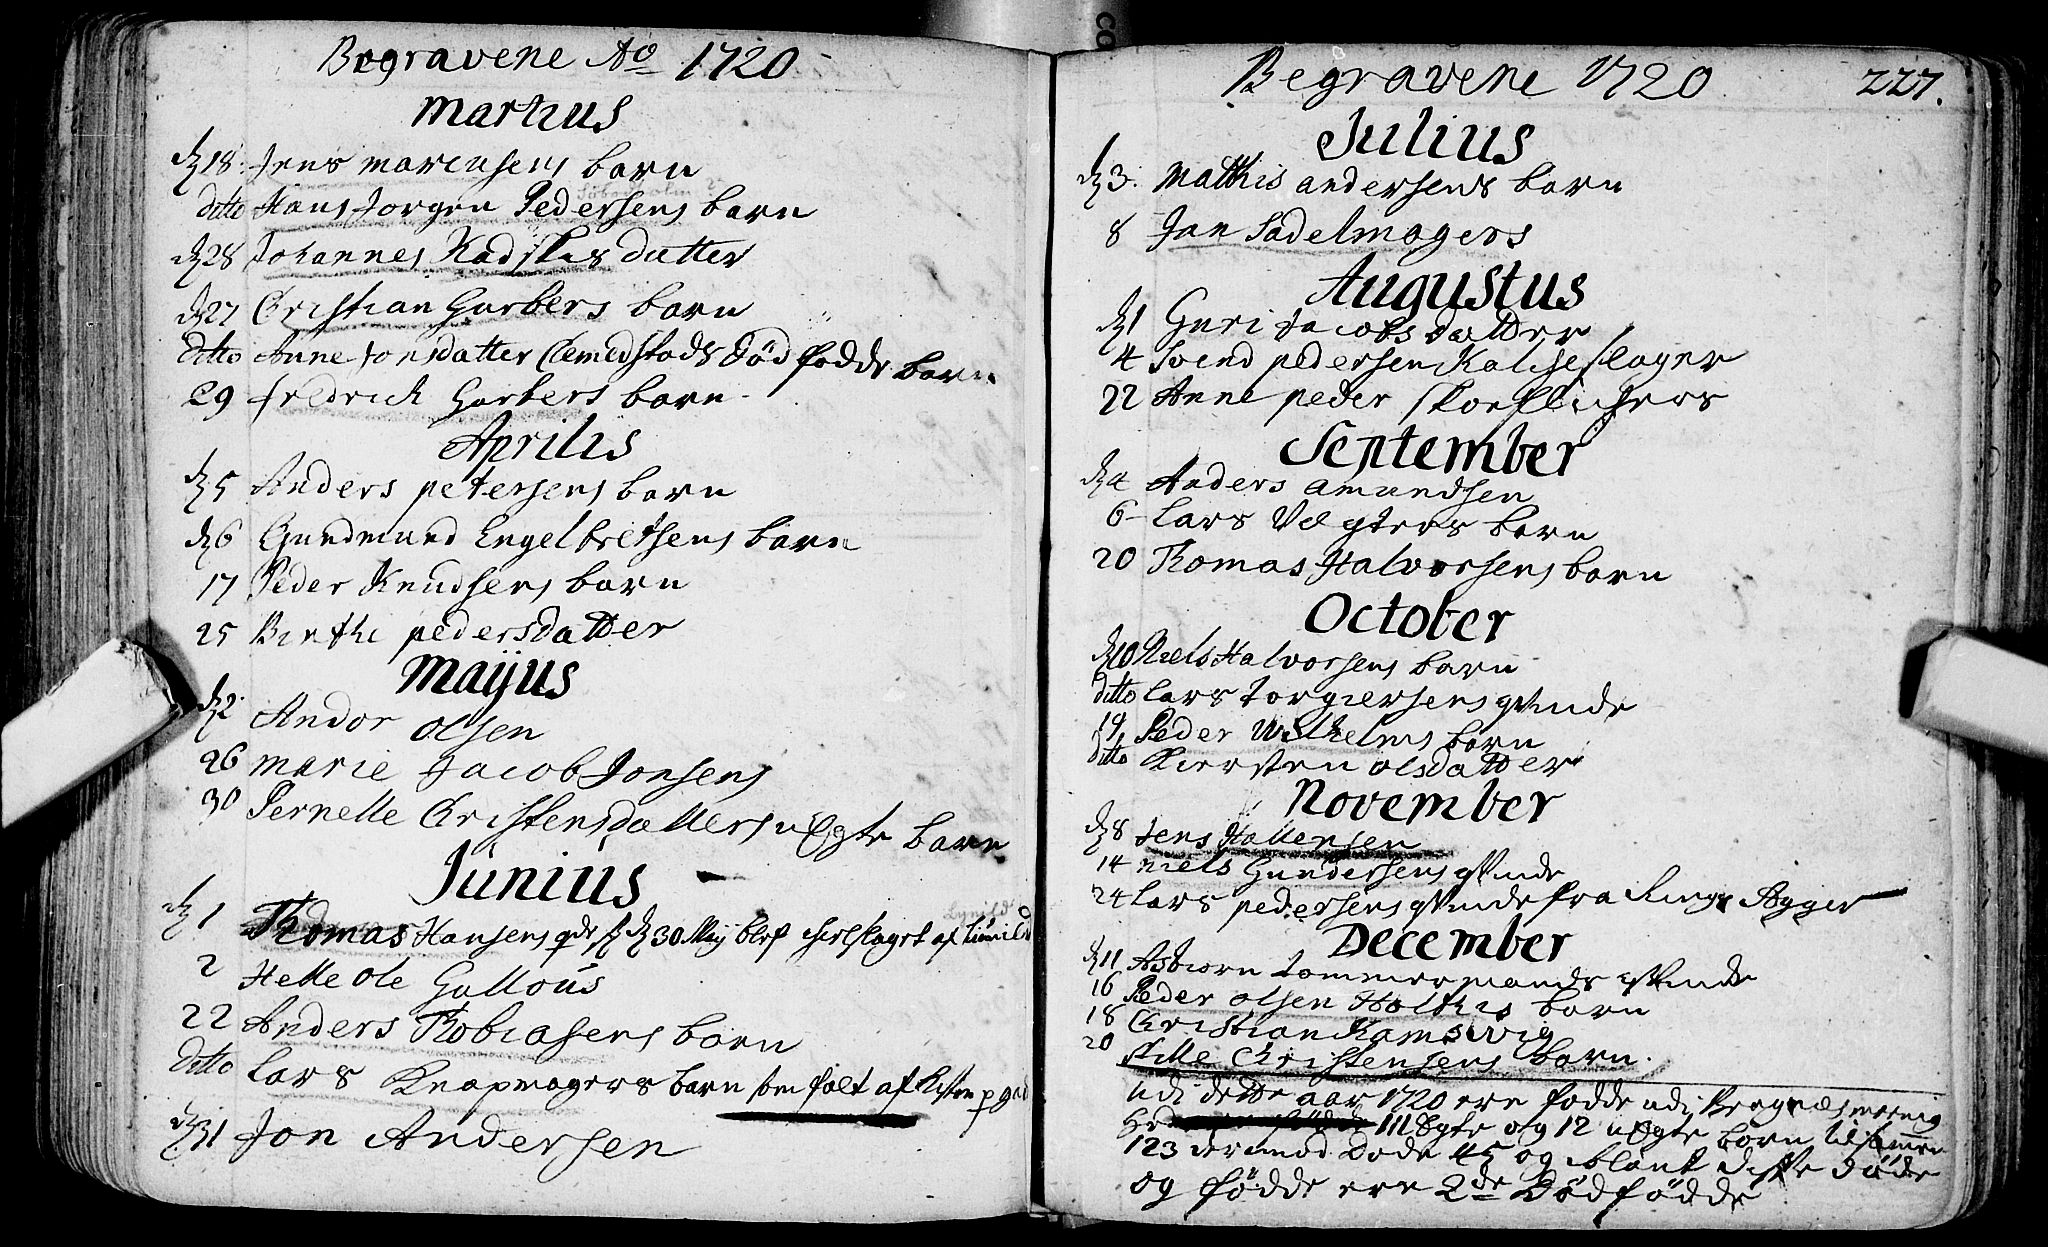 Begravene Ao 1720
Martius
d 18. Jens Morensens barn
ditto Hans Jorgen Pedersens barn
d 28 Johannes Kadskes datter
d 27 Christian Garbers barn
ditto Anne Jonsdatter Clemedstads død fødde barn
29 fredrich Garbers barn
Aprilis
d 5 Anders petersens barn
d 6 Gundmund Engelbretsens barn
17 Peder Knudsens barn
25 Birthe pedersdatter
Maÿus
d 2. Andor olsen
26 marie Jacob Jonsens
30 Pernelle Christensdatters uEgte barn
Junius
d 1 Thomas Hansens d 30 Maij blef ihielslaget af
2 Helle ole Gallous
22 Anders Tobiasens barn
ditto Lars Knapmagers barn som falt af
31 Jon Andersen
Begravene 1720 227.
Julius
d 3. Matthis andersens barn
8 Jan Sadelmagers
Augustus
d 1 Guri Jacobs datter
4 Svend pedersen
22 Anne peder skoeflichers
September
d 4 Anders amundsen
6 Lars Vegters barn
20 Thomas Halvorsens barn
October
d 10 Niels Halvorsens barn
ditto Lars torgiersens qvinde
19 Peder Wilhelms barn
ditto Kiersten olsdatter
November
d 8 Jens Hallensen
14 niels Gundersens qvinde
24 Lars pedersens qvinde fra Ringe Agger
December
d 11 Asbiørn tømmermands qvinde
16 Peder olsen Holthis barn
18 Christian Ramsvig
20 Pelle Christensens barn.
udi dette aar 1720 ere fødde udi Bragnæs menig
Hed 111 Egte og 12 uEgte børn tilsammen
123 derimod døde 45 og iblant disse døde
og fødde ere 2de Dødfødde